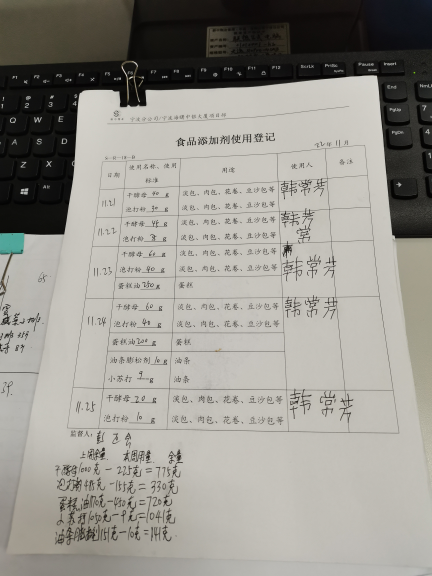 宁夏分公司/宁夏海曙中轩大厦项目部
食品添加剂使用登记
22年11月
日期 使用名称、使用标准 用途 使用人 备注
11.21 干酵母 40 g 淡包、肉包、花卷、豆沙包等 韩常芳
泡打粉 30 g 淡包、肉包、花卷、豆沙包等
11.22 干酵母 45 g 淡包、肉包、花卷、豆沙包等 韩常芳
泡打粉 g 淡包、肉包、花卷、豆沙包等
11.23 干酵母 60 g 淡包、肉包、花卷、豆沙包等 韩常芳
泡打粉 40 g 淡包、肉包、花卷、豆沙包等
蛋糕油 250 g 蛋糕
11.24 干酵母 60 g 淡包、肉包、花卷、豆沙包等 韩常芳
泡打粉 40 g 淡包、肉包、花卷、豆沙包等
蛋糕油 200 g 蛋糕
油条膨松剂 10 g 油条
小苏打 9 g 油条
11.25 干酵母 20 g 淡包、肉包、花卷、豆沙包等 韩常芳
泡打粉 10 g 淡包、肉包、花卷、豆沙包等
监督人：彭
上周余量 本周用量 余量
干酵母1000克-225克=775克
泡打粉485克-155克=330克
蛋糕油1170克-450克=720克
小苏打1050克-9克=1041克
油条膨松剂151克-10克=141克